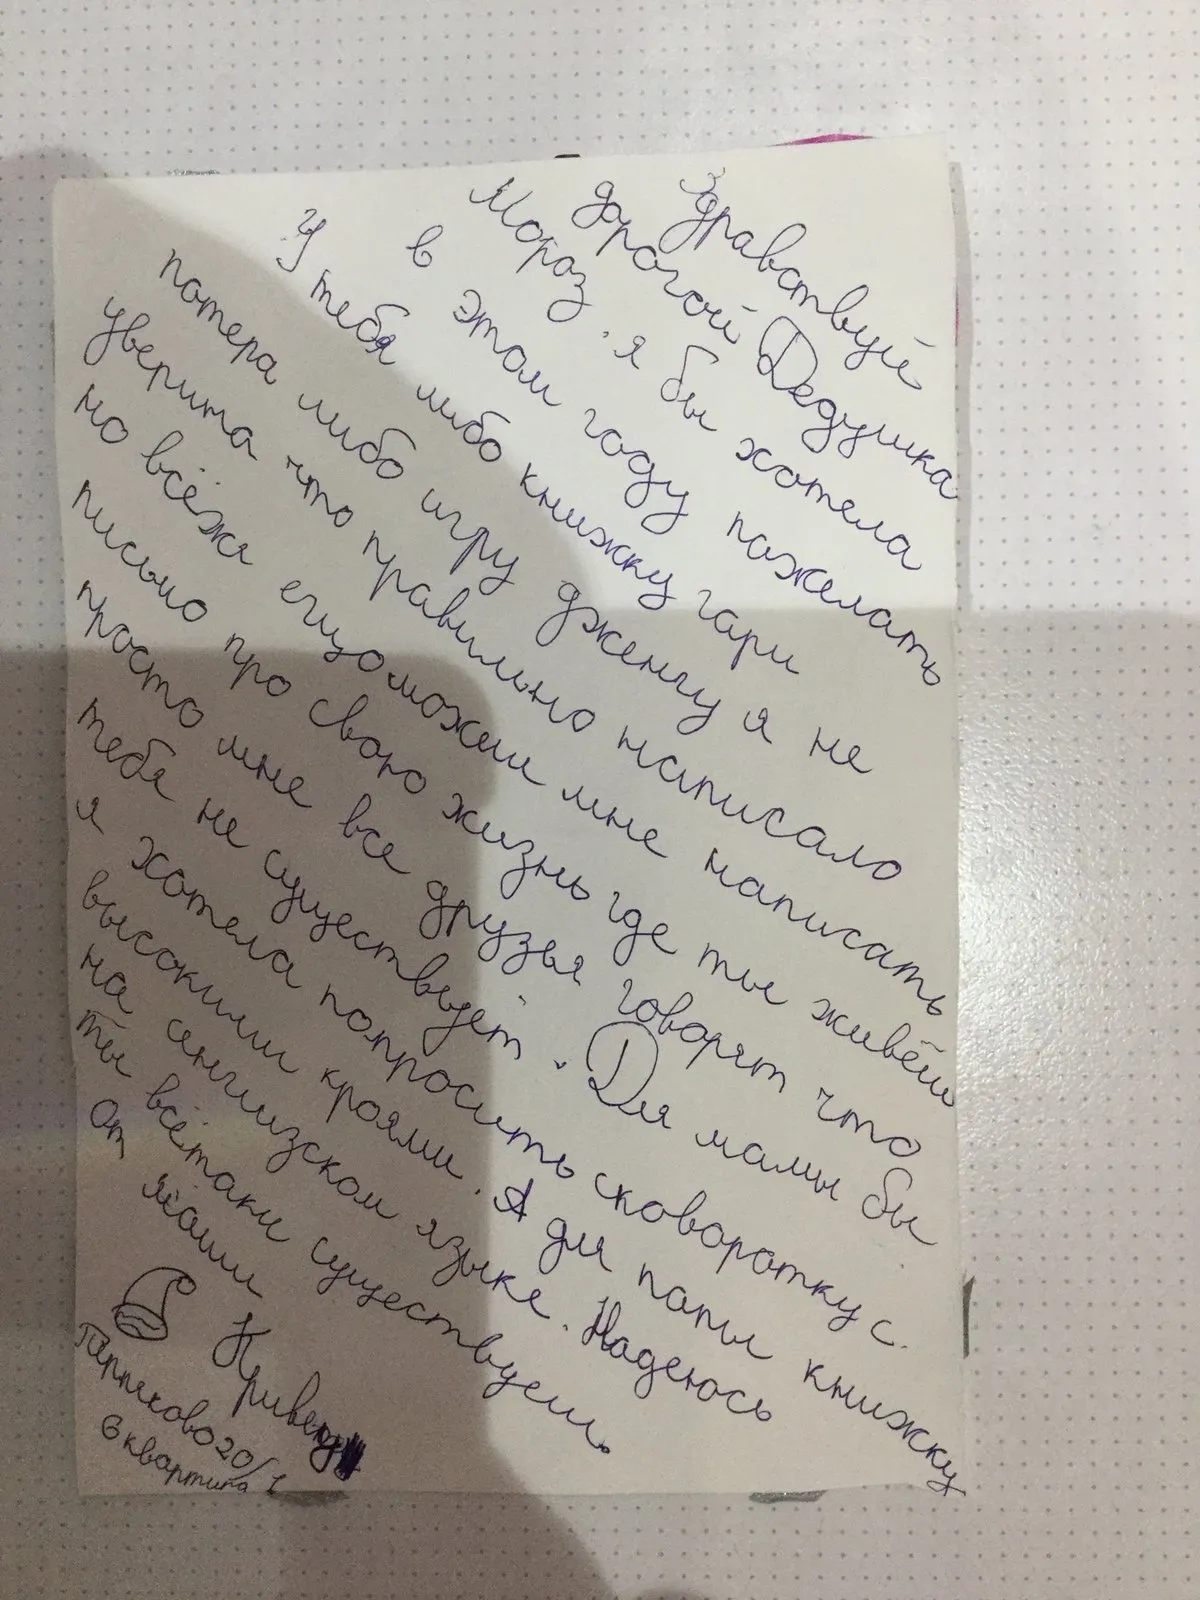 Здравствуй
дорогой Дедушка
Мороз. я бы хотела
в этом году пожелать
У тебя либо книжку гари
потера либо игру дженгу я не
уверина что правильно написало
но всёжа ещё можеш мне написать
письмо про свою жизнь где ты живёш
просто мне все друзья говорят что
тебя не существует. Для мамы бы
я хотела попросить сковоротку с
высокими кроями. А для папы книжку
на сенгизском языке. Надеюсь
ты всётаки существуеш.
От
20/1
6 квартира